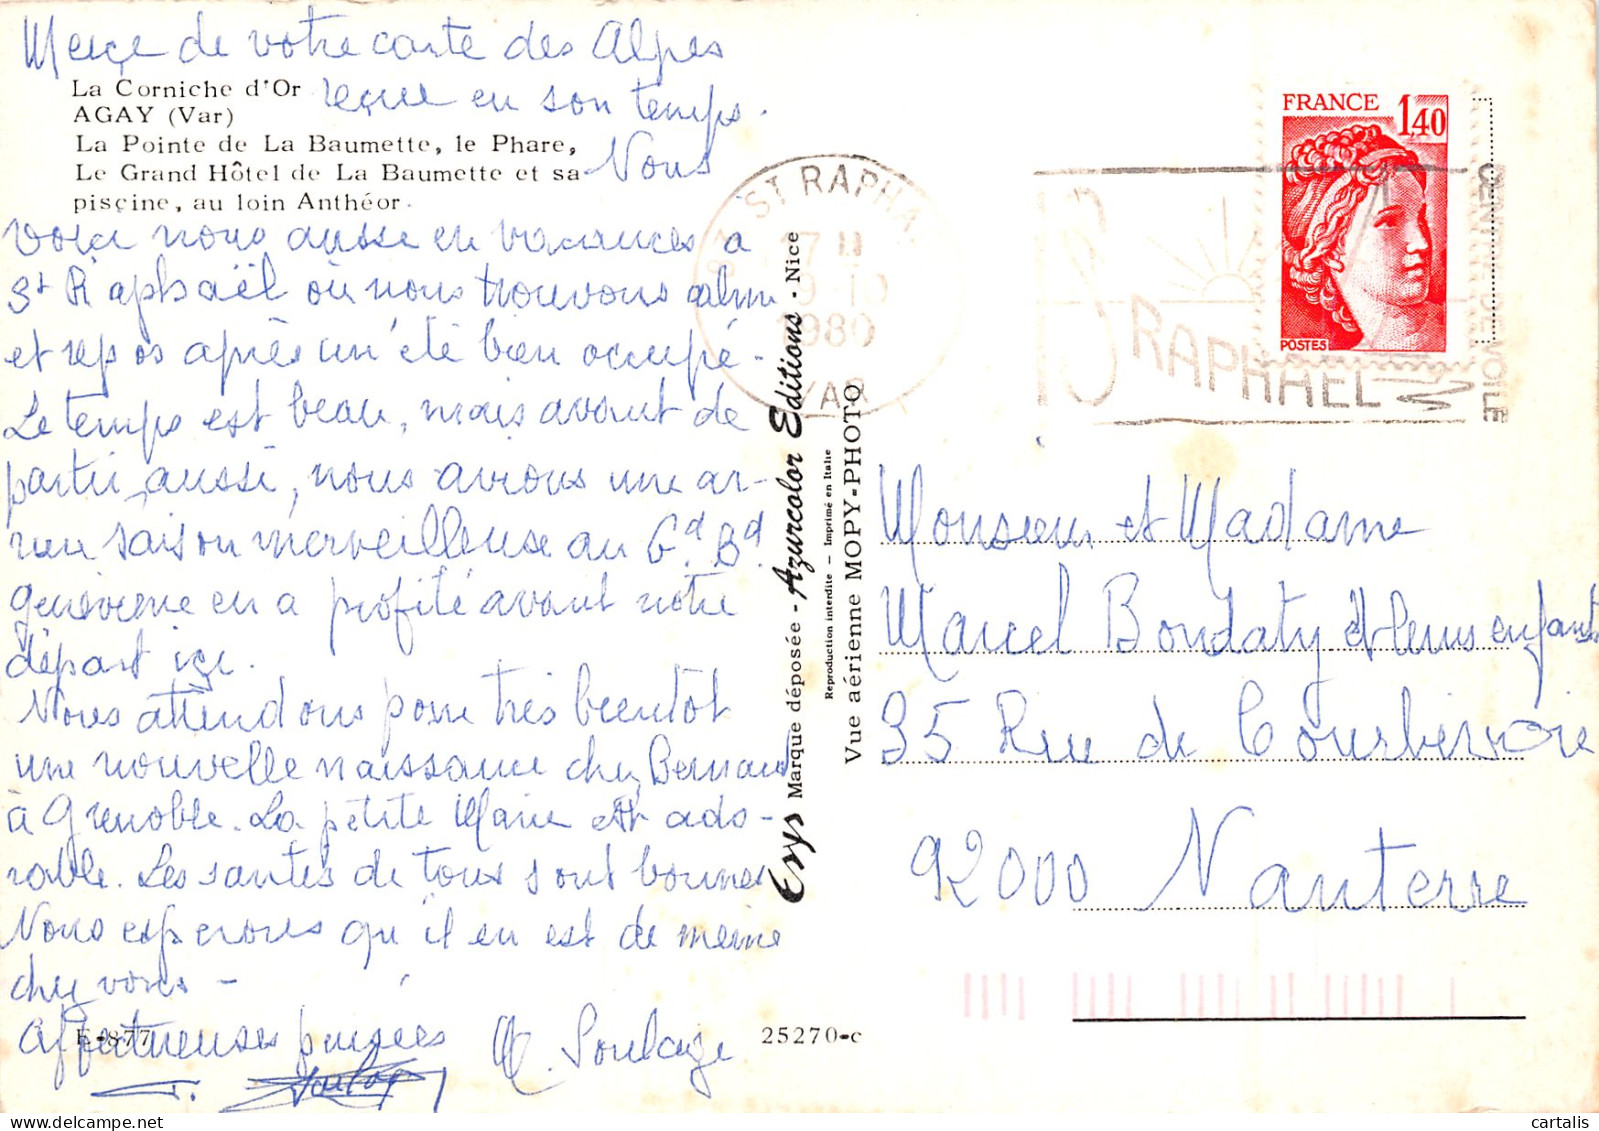 Merci de votre carte des Alpes
reçue en son temps.
La Corniche d'Or
AGAY (Var)
La Pointe de La Baumette, le Phare,
Le Grand Hôtel de La Baumette et sa
piscine, au loin Anthéor.
Nous
voici nous aussi en vacances à
St Raphaël où nous trouvons calme
et repos après un été bien occupé.
Le temps est beau, mais avant de
partir aussi, nous avions une ar-
rière saison merveilleuse au Gd. Bd
Geneviève en a profité avant notre
départ ici.
Nous attendons pour très bientôt
une nouvelle naissance chez Bernard
à Grenoble. La petite Marie est ado-
rable. Les santés de tous sont bonnes
Nous espérons qu'il en est de même
chez vous -
Affectueuses pensées
M. Soulage
E-877
25270-c
Erys Marque déposée - Azurcolor Editions - Nice
Reproduction interdite - Imprimé en Italie
Vue aérienne MOPY-PHOTO
ST RAPHA
17 H
9-10
1980
VAR
ST RAPHAEL
CENTRE DE VOILE
FRANCE
1,40
POSTES
Monsieur et Madame
Marcel Bondaty et leurs enfants
35 Rue de Courbevoie
92000 Nanterre
cartalis
www.delcampe.net